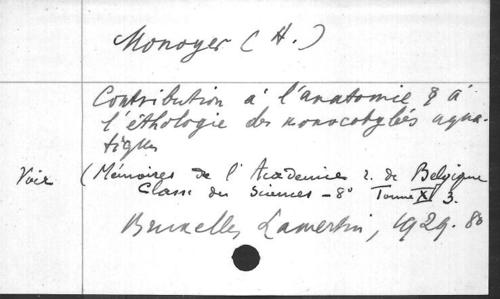 Monoyer (H.)
Contribution à l'anatomie & à
l'éthologie des monocotylés aqua-
tiques
Voir (Mémoires de l'Académie r. de Belgique
Classe des Sciences - 8° Tome XI 3.
Bruxelles Lamertin, 1929. 8°